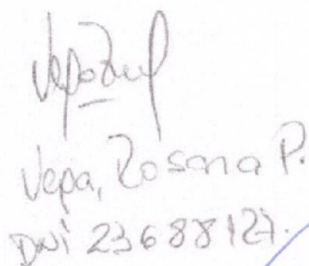 Vepa, Rosana P.
DNI 23688127.